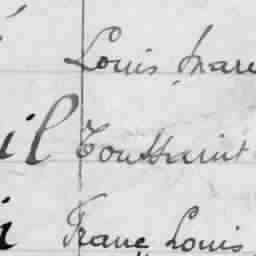 Louis Marc
il Toussaint
i Franc Louis